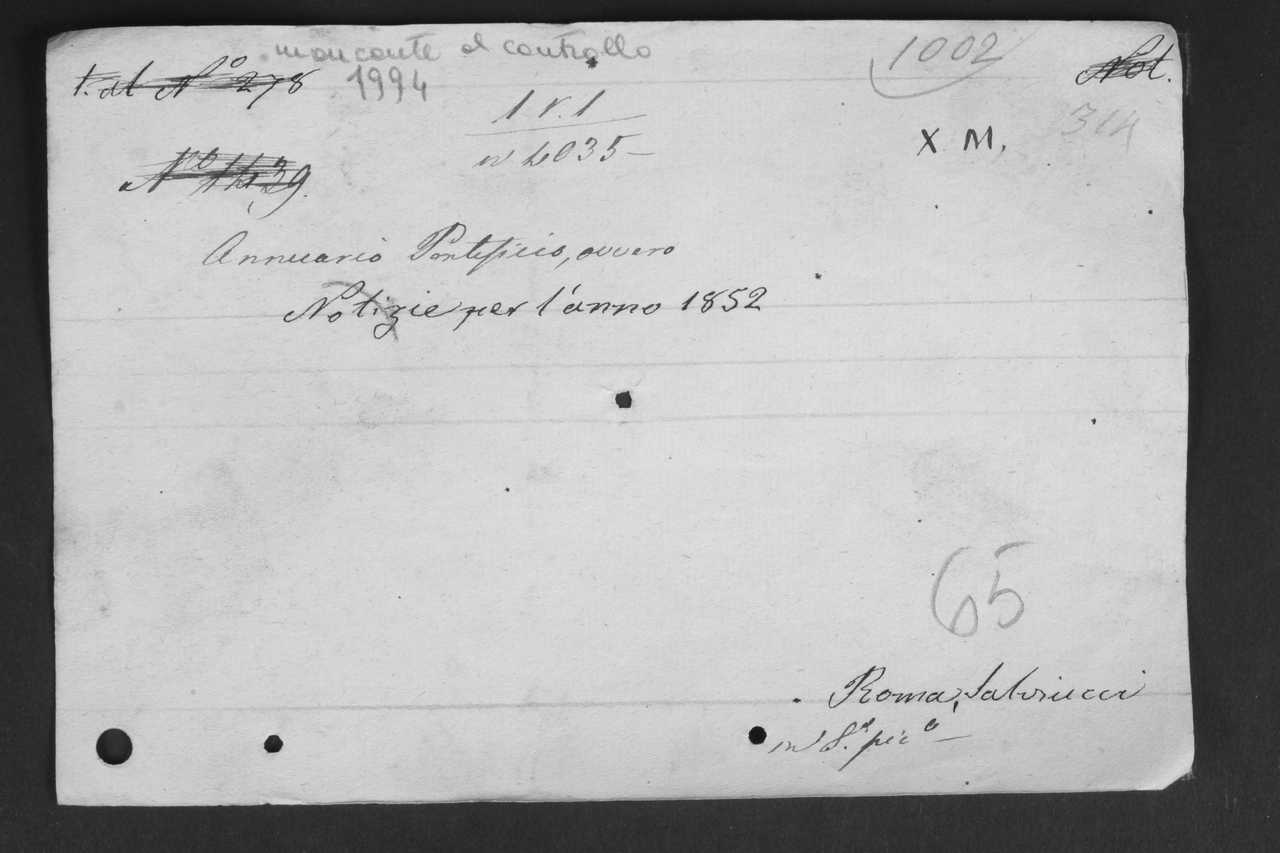 mancante al controllo
1994
1002
Not.
t. al N° 278
1 v. 1
314
N° 1439.
in 4035 –
X M.
Annuario Pontificio, ovvero
Notizie per l'anno 1852
65
Roma, Salviucci
in 8.° pic°